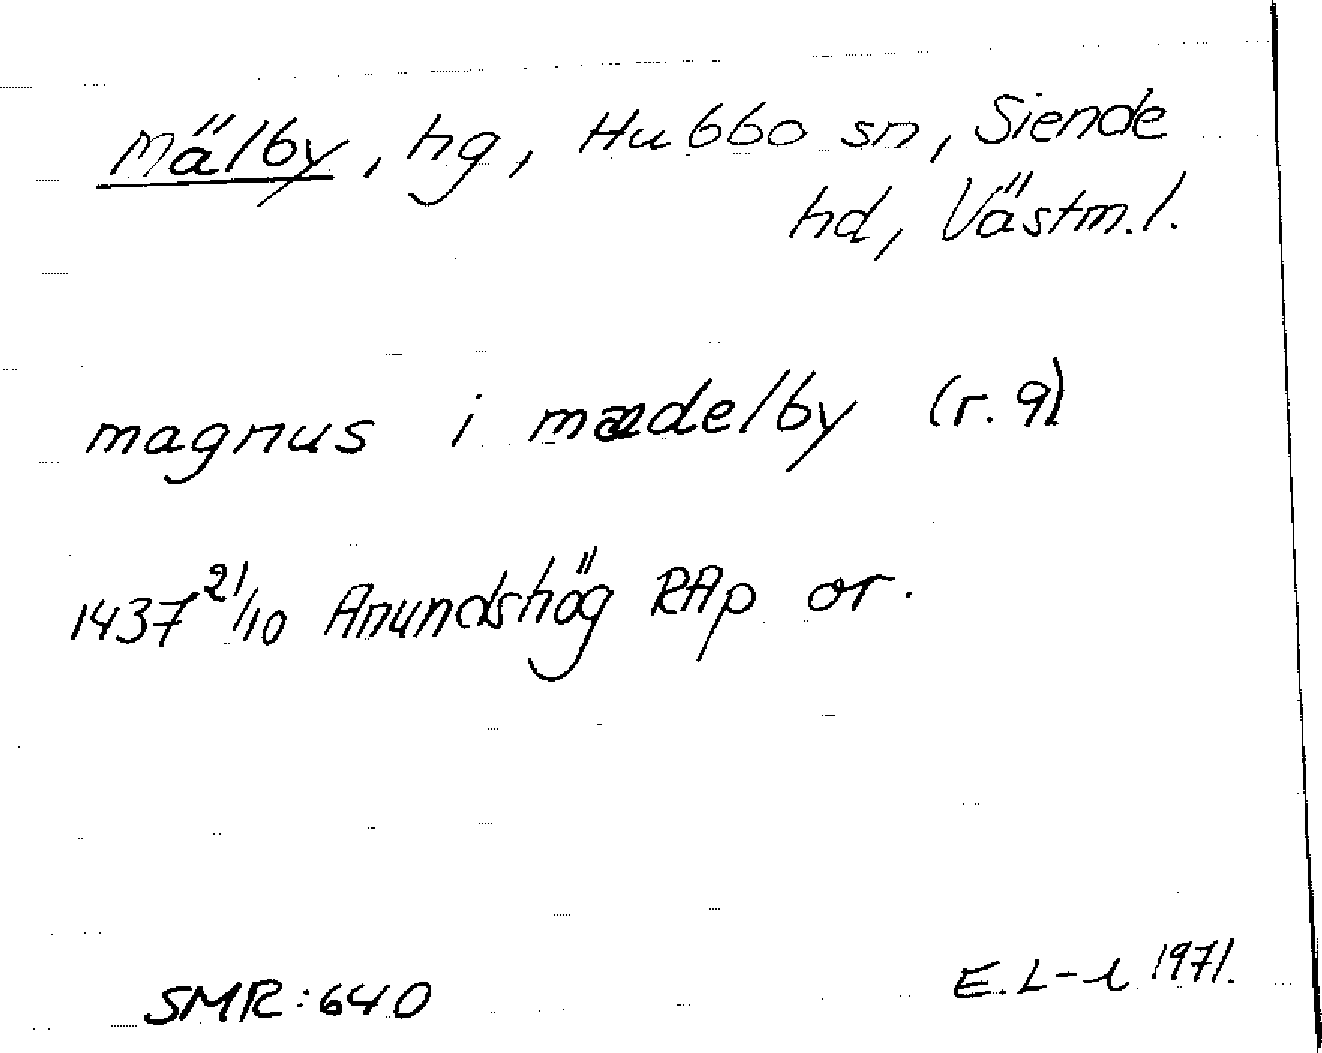 Mälby, hg, Hubbo sn, Siende
hd, Västm.l.
magnus i mædelby (r. 9)
1437 21/10 Anundshög RAp or.
SMR: 640
E. L-l 1971.